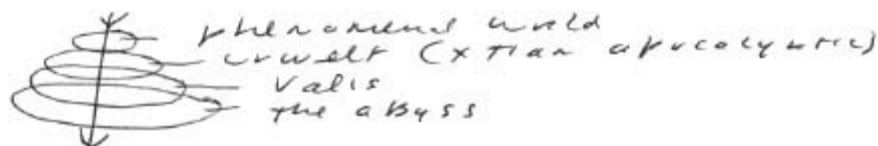 phenomenal world
urwelt (xtian apocalyptic)
Valis
the abyss